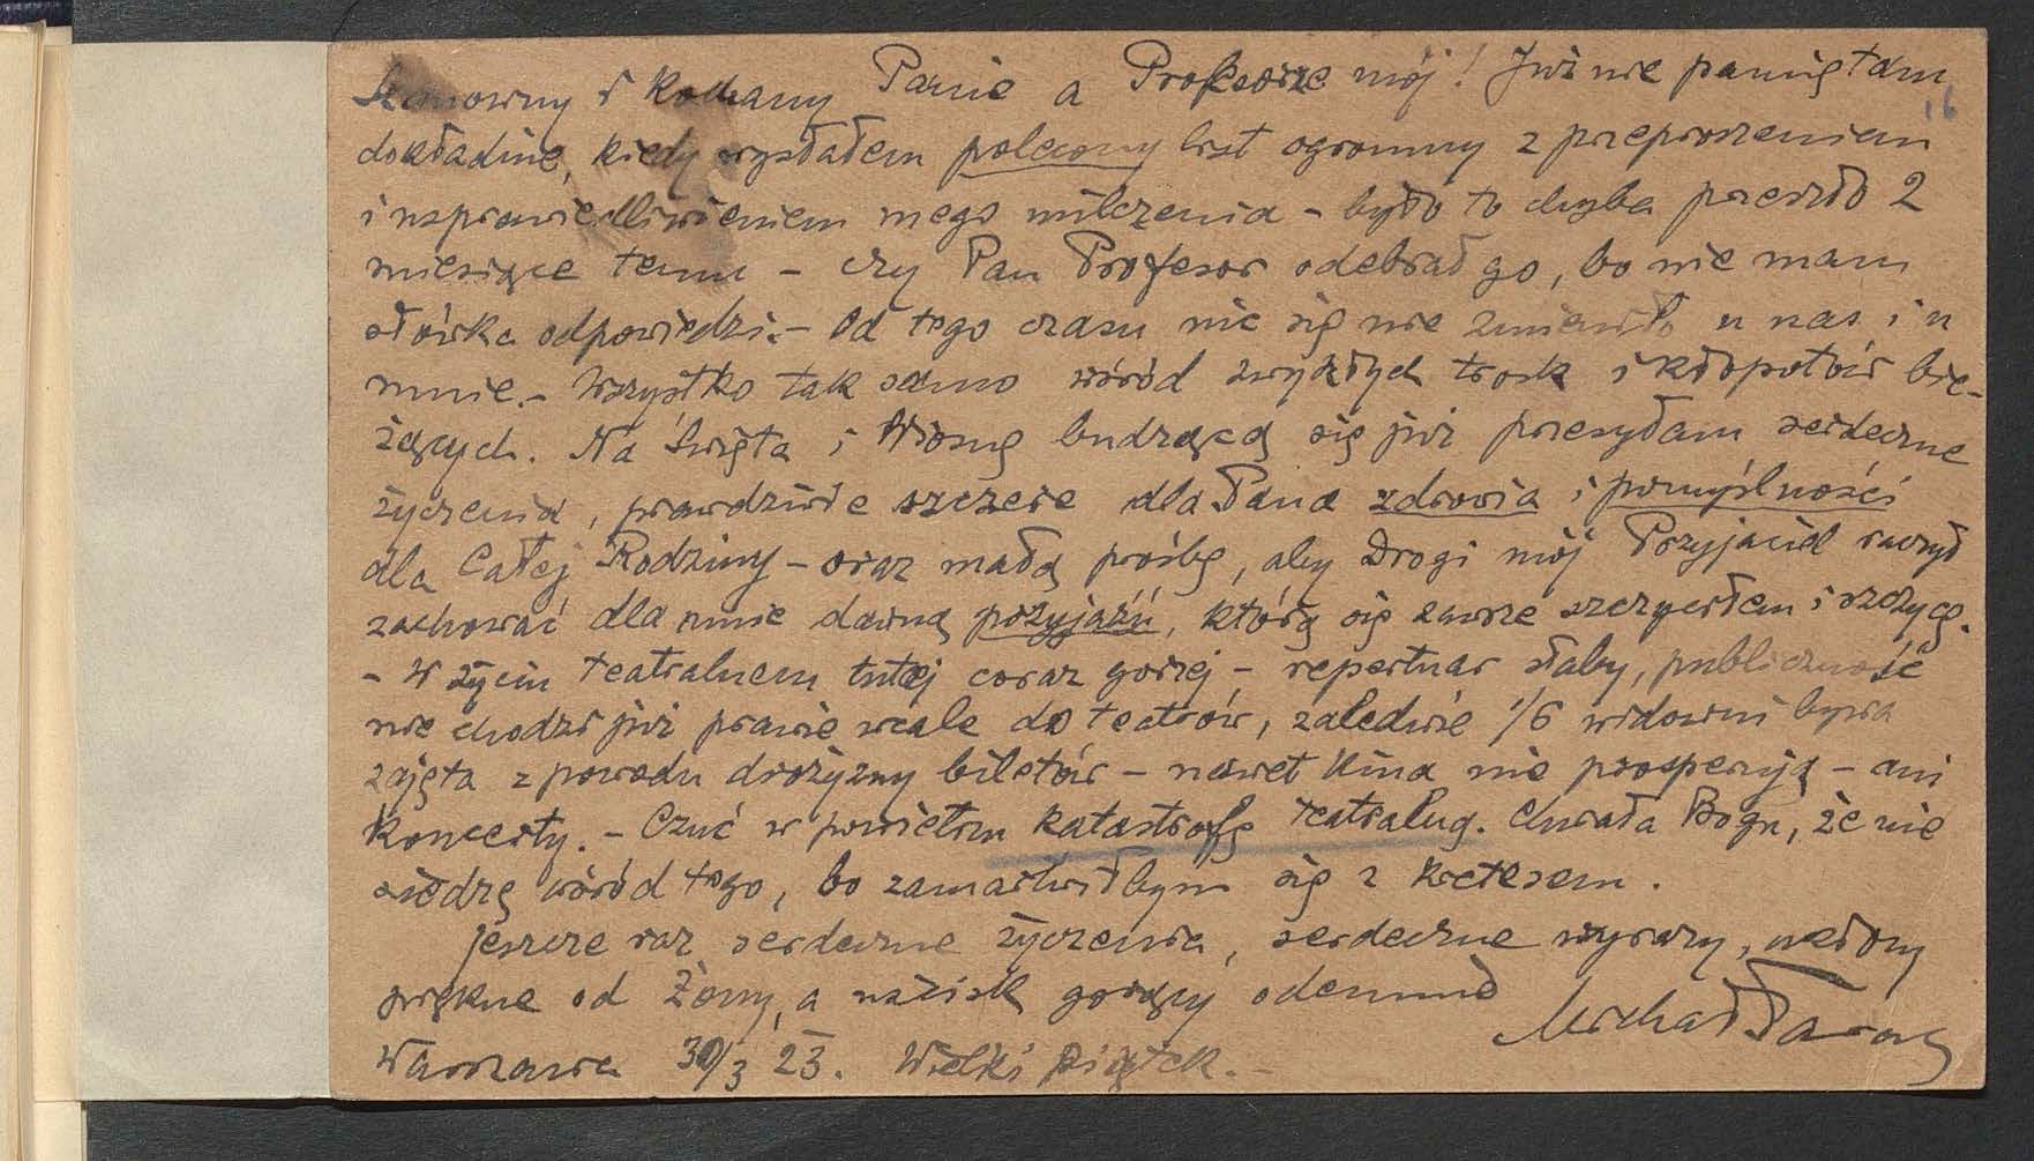 Szanowny i Kochany Panie a Profesorze mój! Już nie pamiętam
16
dokładnie, kiedy wysłałem polecony list ogromny z przeproszeniem
i usprawiedliwieniem mego milczenia – było to chyba przeszło 2
miesiące temu – czy Pan Profesor odebrał go, bo nie mam
słówka odpowiedzi. – Od tego czasu nic się nie zmieniło u nas i u
mnie. – Wszystko tak samo wśród zwykłych trosk i kłopotów bie-
żących. Na Święta i Wiosnę budzącą się już przesyłam serdeczne
życzenia, prawdziwie szczere dla Pana zdrowia i pomyślności
dla Całej Rodziny – oraz małą prośbę, aby Drogi mój Przyjaciel raczył
zachować dla mnie dawną przyjaźń, którą się zawsze szczyciłem i szczycę.
– W życiu teatralnem tutaj coraz gorzej – repertuar słaby, publiczność
nie chodzi już prawie wcale do teatrów, zaledwie 1/6 widowni bywa
zajęta z powodu drożyzny biletów – nawet Kina nie prosperują – ani
koncerty. – Czuć w powietrzu katastrofę teatralną. Chwała Bogu, że nie
siedzę wśród tego, bo zamartwiłbym się z kretesem.
Jeszcze raz serdeczne życzenia, serdeczne wyrazy, ukłony
piękne od Żony, a uścisk gorący odemnie
Michał Taras
Warszawa 30/3 23. Wielki Piątek. –